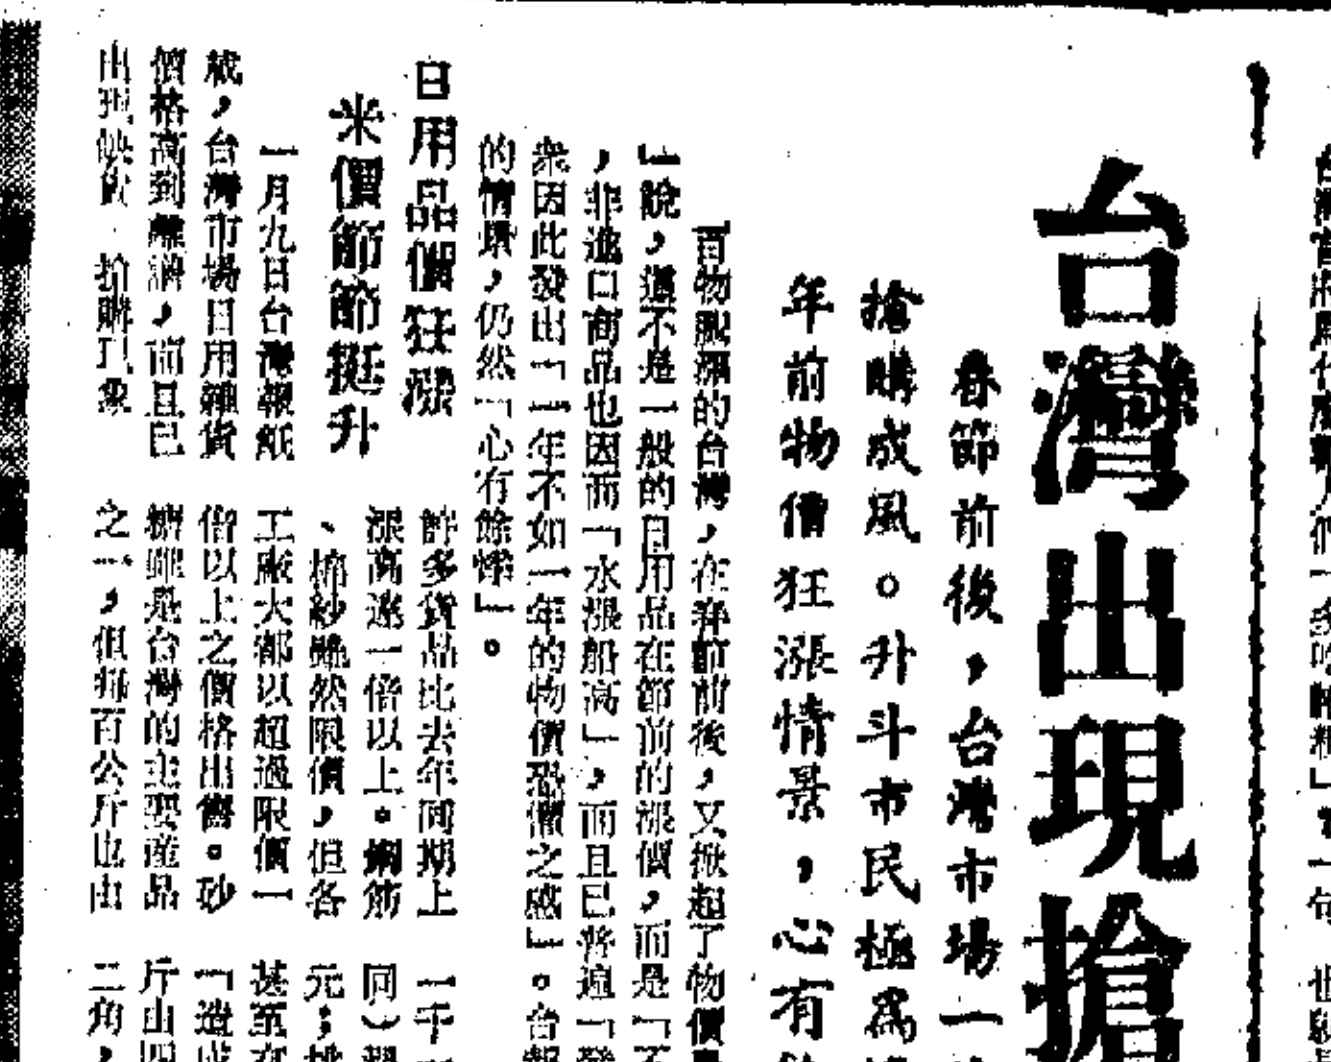 台灣出現搶
春節前後，台灣市場一
搶購成風。升斗市民極爲
年前物價狂漲情景，心有
百物騰漲的台灣，在春節前後，又掀起了物價
」說，這不是一般的日用品在節前的漲價，而是「不
，非進口商品也因而「水漲船高」，而且已普遍「發
衆因此發出「一年不如一年的物價恐懼之感」。台報
的情景，仍然「心有餘悸」。
日用品價狂漲
米價節節挺升
一月九日台灣報紙
載，台灣市場日用雜貨
價格高到離譜，而且已
出現缺貨、搶購現象
許多貨品比去年同期上
漲高達一倍以上。鋼筋
、棉紗雖然限價，但各
工廠大都以超過限價一
倍以上之價格出售。砂
糖雖是台灣的主要產品
之一，但每百公斤也由
一千
同）
元；
甚至
「造成
斤由四
二角，